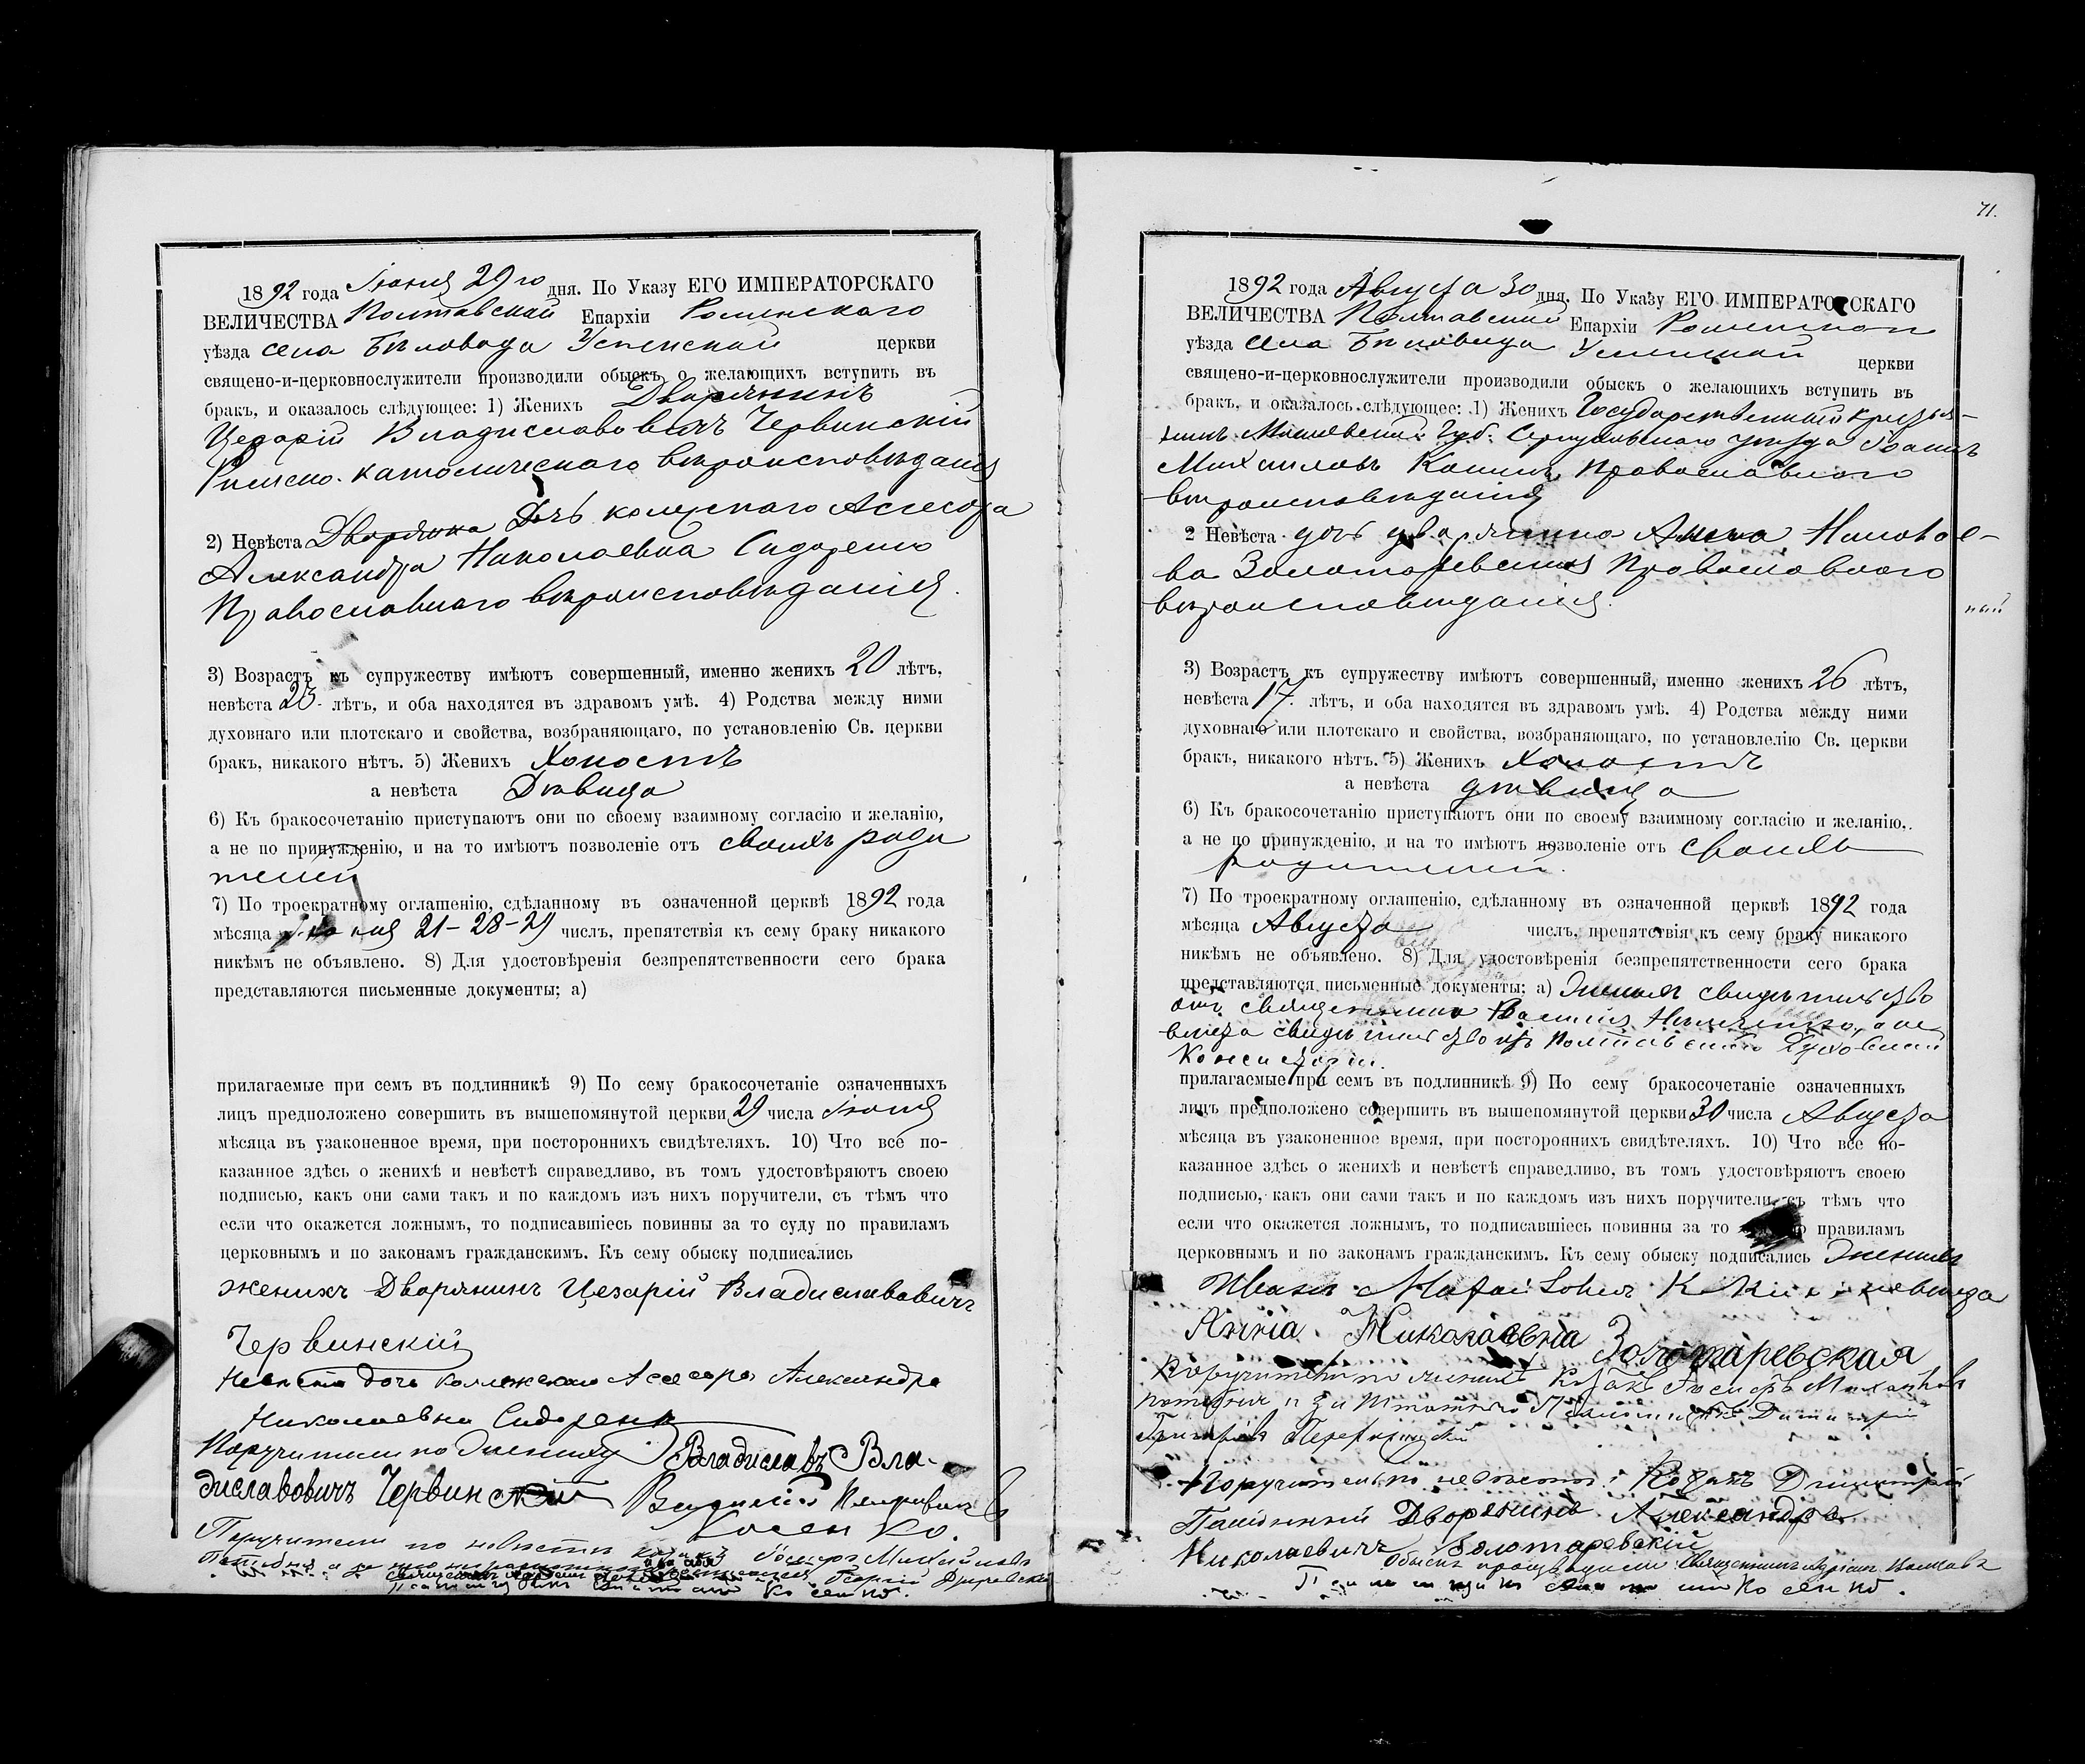 1892 года Іюня 29го дня. По Указу ЕГО ИМПЕРАТОРСКАГО
ВЕЛИЧЕСТВА Полтавской Епархіи Роменскаго
уѣзда села Бѣловода Успенской церкви
священо-и-церковнослужители производили обыскъ о желающихъ вступить въ
бракъ, и оказалось слѣдующее: 1) Женихъ Дворянинъ
Цезарій Владиславовичъ Червинскій
Римско-католическаго вѣроисповѣданія
2) Невѣста Дворянка Дочь колежскаго Ассесора
Александра Николаевна Сидоренко
Православнаго вѣроисповѣданія.
3) Возрастъ къ супружеству имѣютъ совершенный, именно женихъ 20 лѣтъ,
невѣста 23 лѣтъ, и оба находятся въ здравомъ умѣ. 4) Родства между ними
духовнаго или плотскаго и свойства, возбраняющаго, по установленію Св. церкви
бракъ, никакого нѣтъ. 5) Женихъ Холостъ
а невѣста Дѣвица
6) Къ бракосочетанію приступаютъ они по своему взаимному согласію и желанію,
а не по принужденію, и на то имѣютъ позволеніе отъ своихъ роди
телей
7) По троекратному оглашенію, сдѣланному въ означенной церквѣ 1892 года
мѣсяца Іюня 21-28-29 числъ, препятствія къ сему браку никакого
никѣмъ не объявлено. 8) Для удостовѣренія безпрепятственности сего брака
представляются письменные документы; а)
прилагаемые при семъ въ подлинникѣ 9) По сему бракосочетаніе означенныхъ
лицъ предположено совершить въ вышепомянутой церкви 29 числа Іюня
мѣсяца въ узаконенное время, при постороннихъ свидѣтеляхъ. 10) Что все по-
казанное здѣсь о женихѣ и невѣстѣ справедливо, въ томъ удостовѣряютъ своею
подписью, какъ они сами такъ и по каждомъ изъ нихъ поручители, съ тѣмъ что
если что окажется ложнымъ, то подписавшіесь повинны за то суду по правиламъ
церковнымъ и по законамъ гражданскимъ. Къ сему обыску подписались
женихъ Дворянинъ Цезарій Владиславовичъ
Червинскій
Невѣста дочь Коллежскаго Ассесора Александра
Николаевна Сидоренко
Поручители по жениху Владиславъ Вла-
диславовичъ Червинскій Петровичъ
Косенко.
Поручители по невѣсти козакъ Іосифъ Михайловъ
Георгій
Косенко.
71.
1892 года Августа 30 дня. По Указу ЕГО ИМПЕРАТОРСКАГО
ВЕЛИЧЕСТВА Полтавской Епархіи
уѣзда села Бѣловода Успенской церкви
священо-и-церковнослужители производили обыскъ о желающихъ вступить въ
бракъ, и оказалось слѣдующее: 1) Женихъ Государственный крестья-
нинъ Губ. уѣзда Іоаннъ
Православнаго
вѣроисповѣданія
2 Невѣста дочь дворянина Анна Николае-
ва Золотаревская Православнаго
вѣроисповѣданія.
ный
3) Возрастъ къ супружеству имѣютъ совершенный, именно женихъ 26 лѣтъ,
невѣста 17 лѣтъ, и оба находятся въ здравомъ умѣ. 4) Родства между ними
духовнаго или плотскаго и свойства, возбраняющаго, по установлелію Св. церкви
бракъ, никакого нѣтъ. 5) Женихъ Холостъ
а невѣста дѣвица
6) Къ бракосочетанію приступаютъ они по своему взаимному согласію и желанію,
а не по принужденію, и на то имѣютъ позволеніе отъ своихъ
родителей.
7) По троекратному оглашенію, сдѣланному въ означенной церквѣ 1892 года
мѣсяца Августа числъ, препятствія къ сему браку никакого
никѣмъ не объявлено. 8) Для удостовѣренія безпрепятственности сего брака
представляются письменные документы; а) Женихъ свидѣтельство
отъ священника
свидѣтельство изъ Полтавской Духовной
Консисторіи.
прилагаемые при семъ въ подлинникѣ 9) По сему бракосочетаніе означенныхъ
лицъ предположено совершить въ вышепомянутой церкви 30 числа Августа
мѣсяца въ узаконенное время, при постороннихъ свидѣтеляхъ. 10) Что все по-
казанное здѣсь о женихѣ и невѣстѣ справедливо, въ томъ удостовѣряютъ своею
подписью, какъ они сами такъ и по каждомъ изъ нихъ поручители, съ тѣмъ что
если что окажется ложнымъ, то подписавшіесь повинны за то правиламъ
церковнымъ и по законамъ гражданскимъ. Къ сему обыску подписались Женихъ
Иванъ невѣста
Анна Николаевна Золотаревская
Поручители по женихѣ Козакъ Іосифъ Михайловъ
Поручители по невѣсти: Козакъ Димитрій
Дворянинъ Александръ
Николаевичъ Золотаревскій
Обыскъ производили: Священникъ
Косенко.